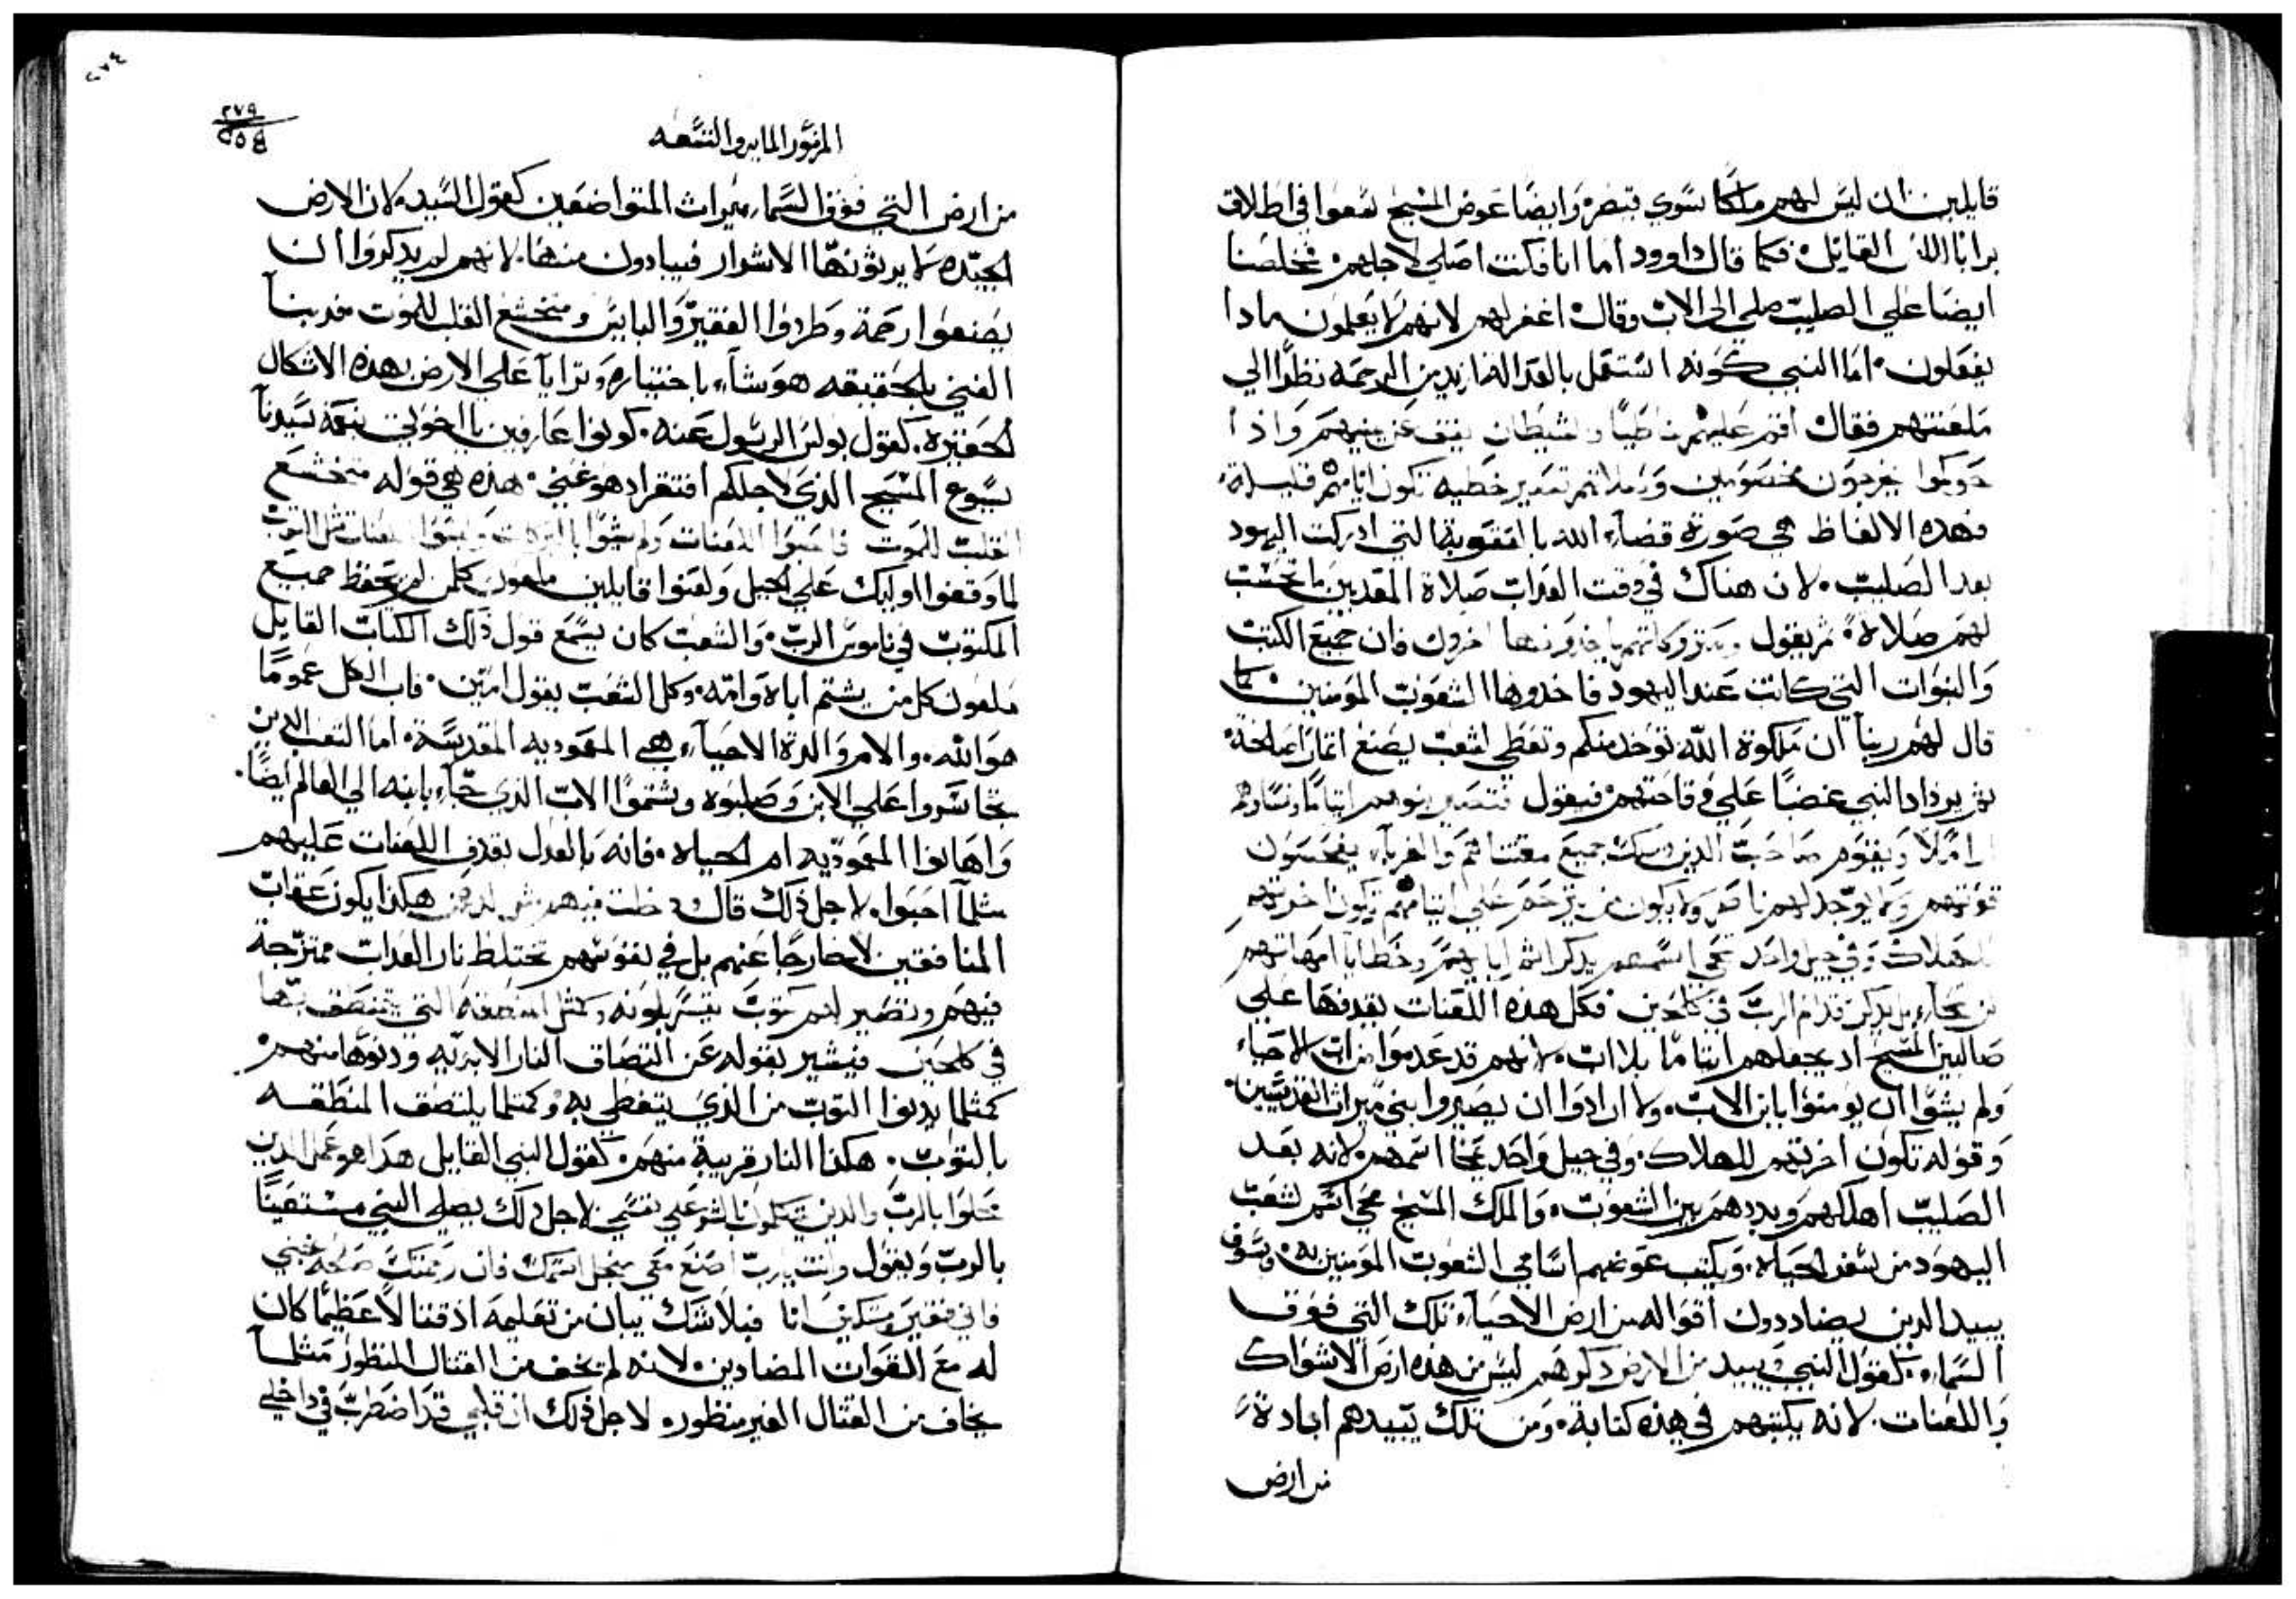 قايلين ان ليس لهم ملكًا سوي قيصر وايضا عوض المسيح شعوا في اطلاق
برابا اللص القاتل. فكما قال داوود اما انا فكنت اصلي لاجلهم فمخلصنا
ايضا علي الصليب صلي الي الاب وقال اغفر لهم لانهم لا يعلمون مادا
يفعلون. اما النبي كونه استعمل بالعداله ازيد من الرحمه نظرًا الي
ملعنتهم فقال اقم عليهم خاطيًا والشيطان يقف عن يمينهم وادا
حوكموا يخرجون مخصومين وصلاتهم تصير خطيه تكون ايامهم قليلة
فهده الالفاظ هي صورة قضاء الله بالعقوبة التي ادركت اليهود
بعد الصليب. لان هناك في وقت العداب صلاة المعدبين ما تحسب
لهم صلاه. ثم يقول وتيزوكاتهم ياخدونها اخرون فان جميع الكتب
والنبوات التي كانت عند اليهود فاخدوها الشعوب المومنين. كما
قال لهم ربنا ان ملكوة الله توخد منكم وتعطي لشعب يصنع اثمارًا صالحة
ثم يزداد النبي غضبًا علي وقاحتهم فيقول فتصير بنوهم ايتامًا ونساوهم
اراملا ويقوم صاحب الدين ويمسك جميع مقتناهم والغرباء يفحصون
قوتهم ولا يوجد لهم ناصر ولا يكون من يترحم علي ايتامهم تكون اخرتهم
للهلاك وفي جيل واحد يمحي اسمهم يدكر اثم ابايهم وخطايا امهاتهم
لن تمحاء بل يدكر قدام الرب في كل حين فكل هده اللعنات يقدفها علي
صالبين المسيح اد يجعلهم ايتامًا بلا اب. لانهم قد عدموا ميراث الاحياء
ولم يشوا ان يومنوا بابن الاب. ولا ارادوا ان يصيروا بني ميراث القديسين
وقوله تكون اخرتهم للهلاك وفي جيل واحد يمحا اسمهم لانه بعد
الصليب اهلكهم وبددهم بين الشعوب. والملك المسيح محي اسم لشعب
اليهود من سفر الحياه. ويكتب عوضهم اسامي الشعوب المومنين به. وسوف
يبيد الدين يضاددون اقواله من ارض الاحياء تلك التي فوق
السماء. كقول النبي ويبيد من الارض دكرهم ليس من هذه ارض الاشواك
واللعنات. لانه يكتبهم في هذه كتابة. ومن تلك يبيدهم ابادة
من ارض
٢٧٤
٢٧٩
٢٥٤
المزمور المايه والتسعه
من ارض التي فوق السماء ميراث المتواضعين كقول السيد. لان الارض
الجيده لا يرثونها الاشرار فيبادون منها. لانهم لم يدكروا ان
يصنعوا رحمة وطردوا الفقير والبايس ومنخشع القلب للموت فربنا
الغني بالحقيقه هو شاء باختياره وترايا علي الارض بهذه الاشكال
الحقيره. كقول بولس الرسول عنه. كونوا عارفين يا اخوتي بنعمة سيدنا
يسوع المسيح الذي لاجلكم افتقر اد هو غني. هذه هي قوله منخشع
القلب للموت فاحبوا اللعنات ولم يشوا بالبركات ولبسوا اللعنات مثل التوب
لما وقفوا اوليك علي الجبل ولعنوا قايلين ملعون كلمن لم يحفظ جميع
المكتوب في ناموس الرب. والشعب كان يسمع قول ذلك الكتاب القايل
ملعون كل من يشتم اباه وامه. وكل الشعب يقول امين. فاب الكل عمومًا
هو الله. والام والدة الاحياء هي المعموديه المقدسة. اما الشعب الدين
تجاسروا علي الابن وصلبوه وشتموا الاب الذي جاء بابنه الي العالم ايضًا.
واهانوا المعموديه ام الحياه. فانه بالعدل يقدف اللعنات عليهم
مثلما احبوا. لاجل ذلك قال دخلت فيهم مثل الدهن هكذا يكون عقاب
المنافقين لا خارجًا عنهم بل في نفوسهم تختلط نار العداب ممتزجة
فيهم وتصير لهم كتوب يتسربلونه وكمثل المنطقه التي يتمنطق بها
في كل حين فيشير بقوله عن التصاق النار الابديه ودنوها منهم.
كمثلما يدنوا التوب من الذي يتغطي به وكمثلما يلتصق المنطقه
بالتوب. هكذا النار قريبة منهم. كقول النبي القايل هدا هو عمل الدين
محلوا بالرب والدين يتكلمون بالشر علي نفسي لاجل ذلك يصلي النبي مستغيثًا
بالرب ويقول وانت يارب اصنع معي من اجل اسمك فان رحمتك صالحه نجيني
فاني فقير ومسكين انا فبلا شك يبان من تعليمه اد قتالا عظيمًا كان
له مع القوات المضادين. لانه لم يخف من القتال المنظور مثلما
يخاف من القتال الغير منظوره لاجل ذلك ان قلبي قد اضطرب في داخلي